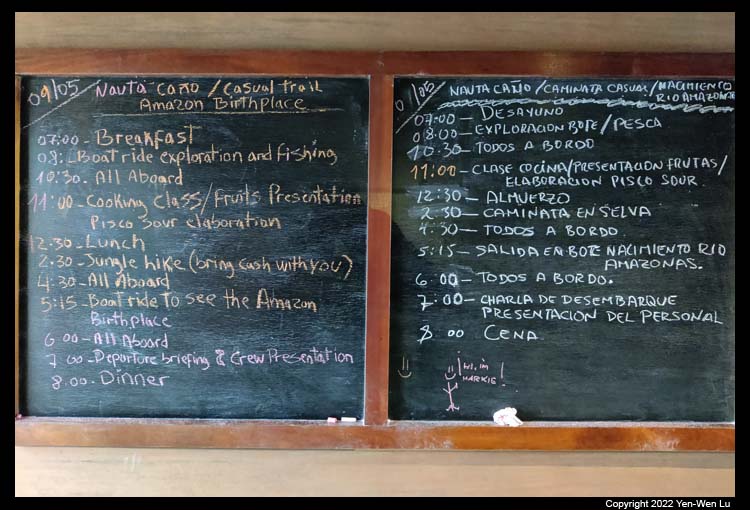 09/05 Nauta Caño / Casual trail
Amazon Birthplace
07:00 - Breakfast
08:- Boat ride exploration and fishing
10:30. All Aboard
11:00 - Cooking Class/Fruits Presentation
Pisco Sour elaboration
12:30 - Lunch
2:30 - Jungle hike (bring cash with you)
4:30 - All Aboard
5:15 - Boat ride to see the Amazon
Birthplace
6:00 - All Aboard
7:00 - Departure briefing & Crew Presentation
8:00 - Dinner
/05 NAUTA CAÑO / CAMINATA CASUAL / NACIMIENTO
RIO AMAZONAS
07:00 - DESAYUNO
08:00 - EXPLORACION BOTE / PESCA
10:30 - TODOS A BORDO
11:00 - CLASE COCINA/PRESENTACION FRUTAS/
ELABORACION PISCO SOUR.
12:30 - ALMUERZO
2:30 - CAMINATA EN SELVA
4:30 - TODOS A BORDO
5:15 - SALIDA EN BOTE NACIMIENTO RIO
AMAZONAS.
6:00 - TODOS A BORDO.
7:00 - CHARLA DE DESEMBARQUE
PRESENTACION DEL PERSONAL
8:00 CENA
¡HI, IM
!
Copyright 2022 Yen-Wen Lu